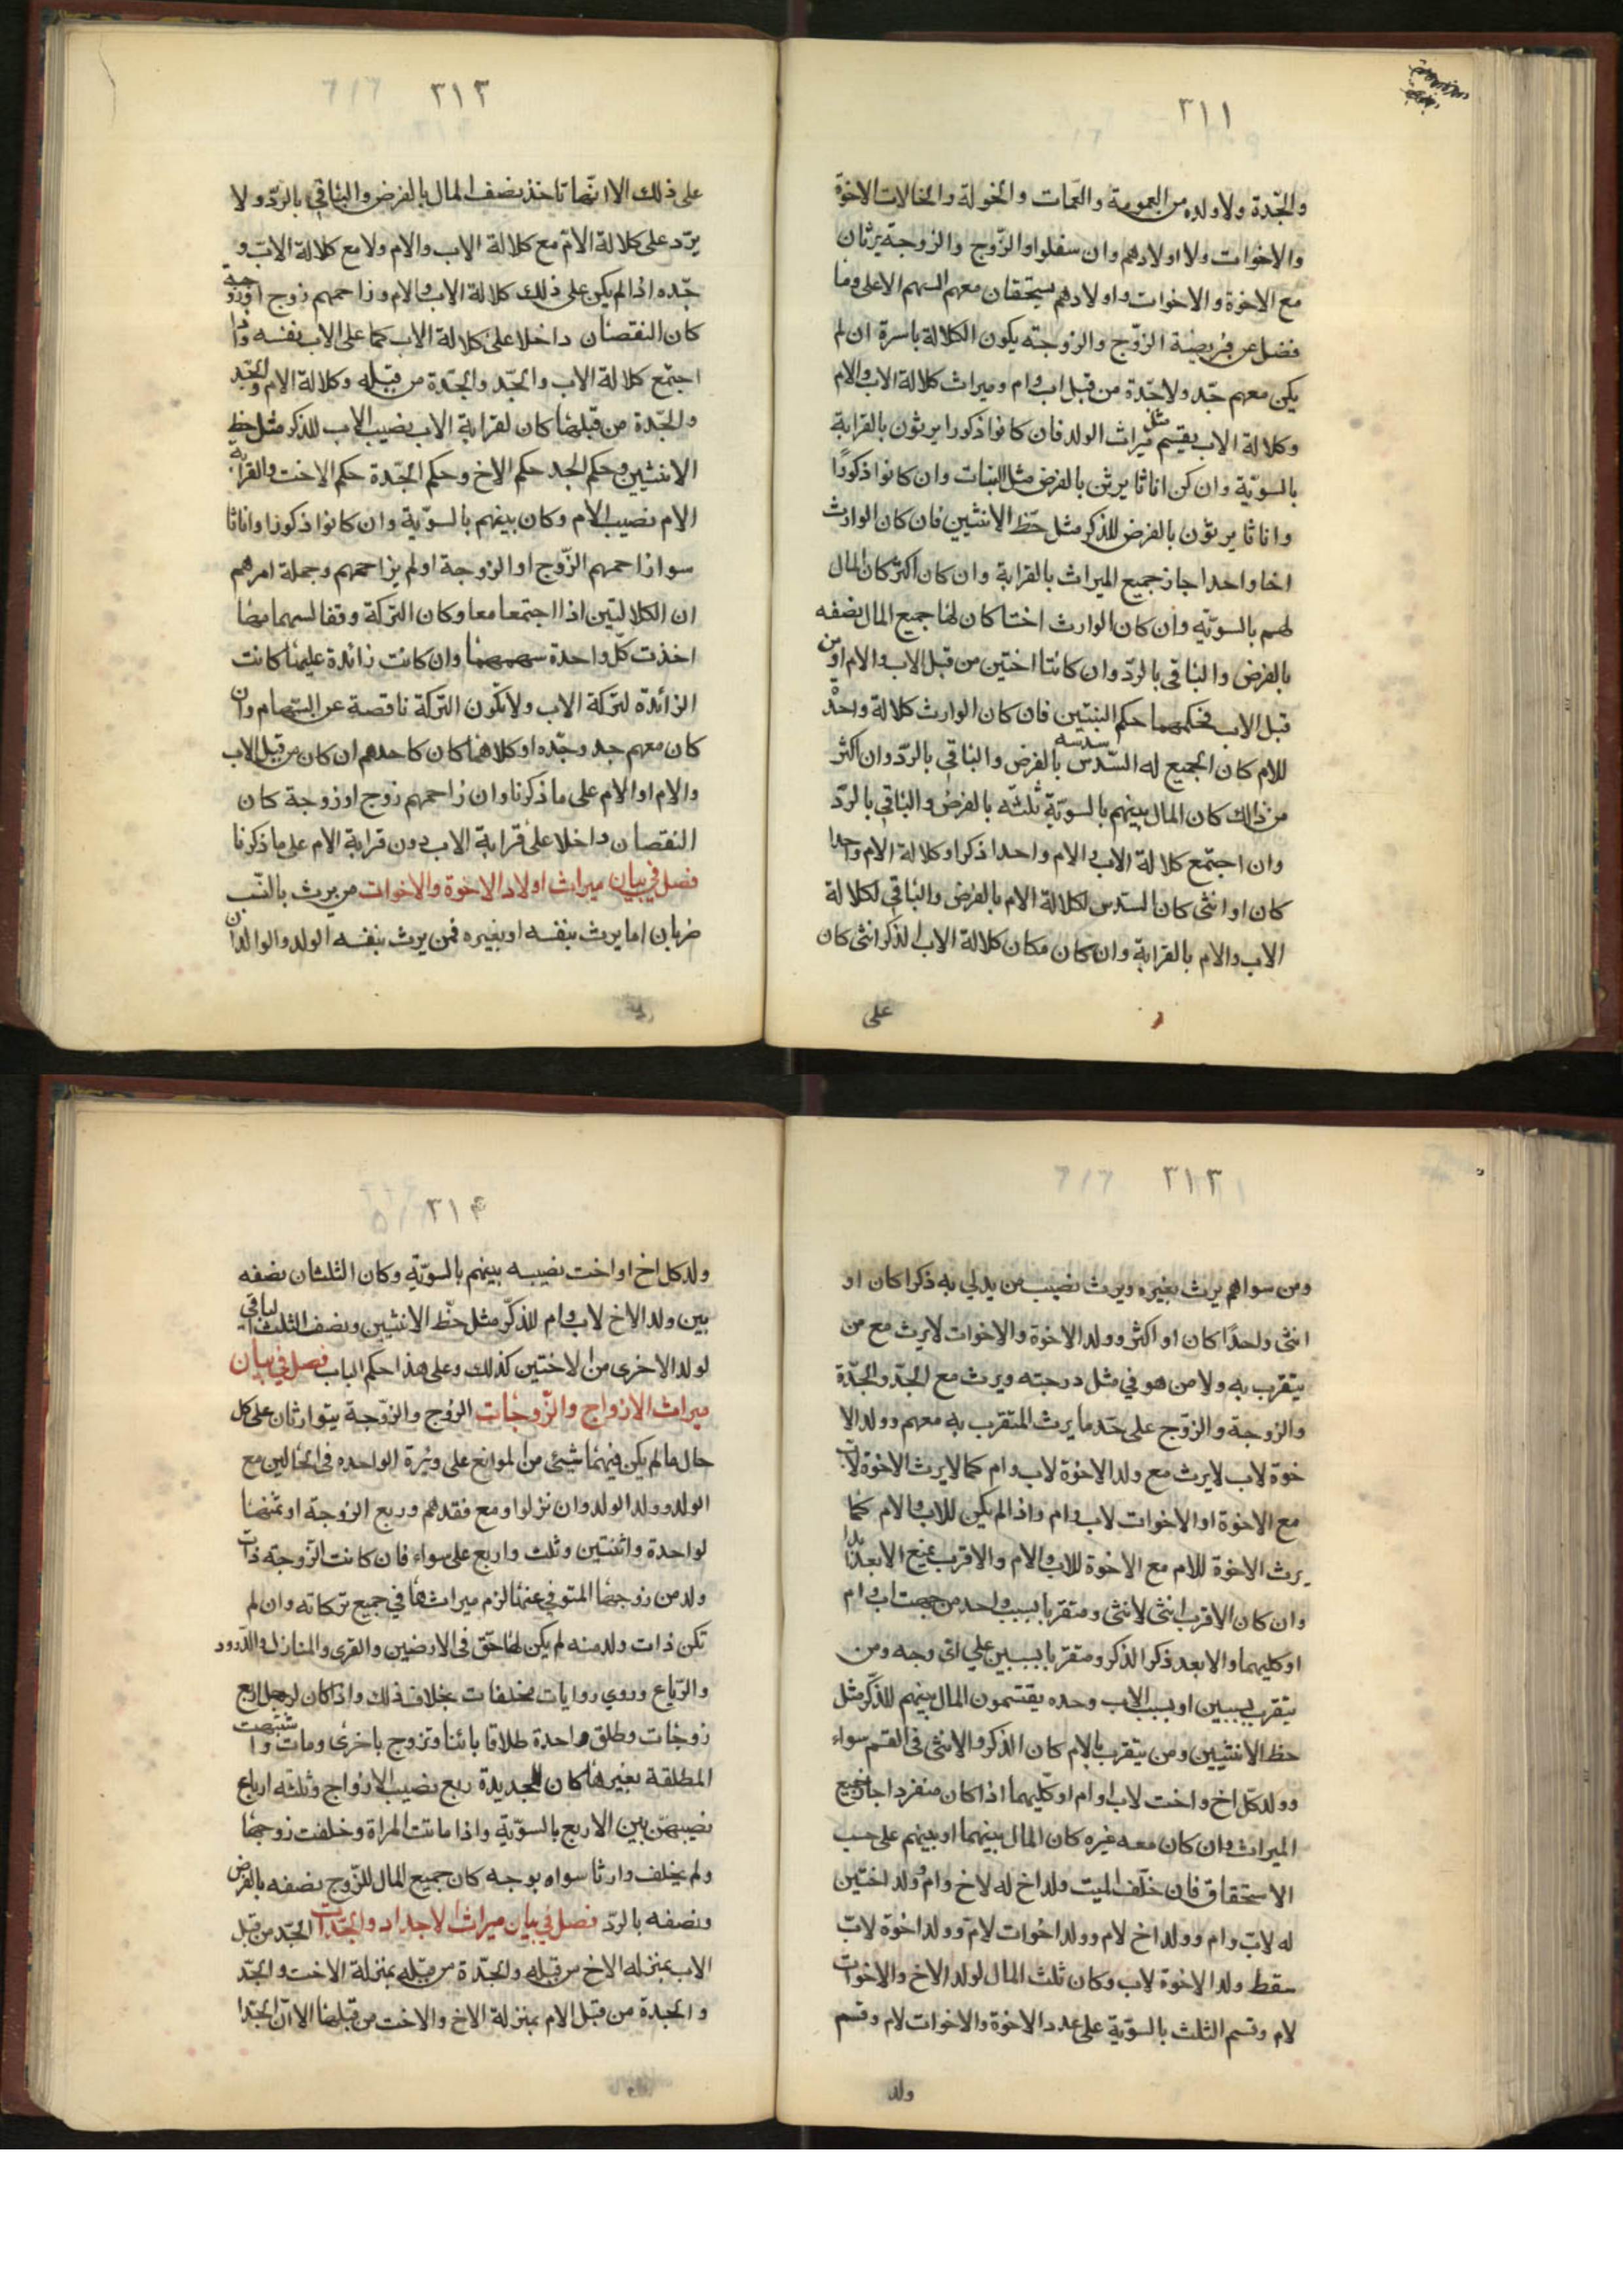 ٣١١
والجدة ولا ولده من العمومة والعمات والخولة والخالات الاخوة
والاخوات ولا اولادهم وان سفلوا والزوج والزوجة يرثان
مع الاخوة والاخوات واولادهم يستحقان معهم السهم الاعلى وما
فضل عن فريضة الزوج والزوجة يكون الكلالة باسرة ان لم
يكن معهم جد ولا جدة من قبل اب وام وميراث كلالة الاب والام
وكلالة الاب يقسم مثل ميراث الولد فان كانوا ذكورا يرثون بالقرابة
بالسوية وان كن اناثا يرثن بالفرض مثل البنات وان كانوا ذكورا
واناثا يرثون بالفرض للذكر مثل حظ الانثيين فان كان الوارث
اخا واحدا جاز جميع الميراث بالقرابة وان كان اكثر كان المال
لهم بالسوية وان كان الوارث اختا كان لها جميع المال نصفه
بالفرض والباقي بالرد وان كانتا اختين من قبل الاب والام او من
قبل الاب فحكمهما حكم البنتين فان كان الوارث كلالة واحد
للام كان الجميع له السدس سدسه بالفرض والباقي بالرد وان اكثر
من ذلك كان المال بينهم بالسوية ثلثه بالفرض والباقي بالرد
وان اجتمع كلالة الاب والام واحدا ذكرا وكلالة الام واحدا
كان او انثى كان السدس لكلالة الام بالفرض والباقي لكلالة
الاب والام بالقرابة وان كان مكان كلالة الاب لذكر انثى كان
على
٣١٢
على ذلك الا انها تاخذ نصف المال بالفرض والباقي بالرد ولا
يرد على كلالة الام مع كلالة الاب والام ولا مع كلالة الاب و
جده اذا لم يكن على ذلك كلالة الاب والام وزاحمهم زوج او زوجة
كان النقصان داخلا على كلالة الاب كما على الاب نفسه واذا
اجتمع كلالة الاب والجد والجدة من قبله وكلالة الام والجد
والجدة من قبلها كان لقرابة الاب نصيب الاب للذكر مثل حظ
الانثيين وحكم الجد حكم الاخ وحكم الجدة حكم الاخت والقرابة
الام نصيب الام وكان بينهم بالسوية وان كانوا ذكورا واناثا
سوا زاحمهم الزوج او الزوجة او لم يزاحمهم وجملة امرهم
ان الكلالتين اذا اجتمعا معا وكان التركة وفقا لسهامهما
اخذت كل واحدة سهمهما وان كانت زائدة عليها كانت
الزائدة لتركة الاب ولا تكون التركة ناقصة عن السهام وان
كان معهم جد وجده او كلاهما كان كاحدهم ان كان من قبل الاب
والام او الام على ما ذكرنا وان زاحمهم زوج او زوجة كان
النقصان داخلا على قرابة الاب دون قرابة الام على ما ذكرنا
فصل في بيان ميراث اولاد الاخوة والاخوات من يرث بالنسب
ضربان اما يرث بنفسه او بغيره فمن يرث بنفسه الولد والوالدان
٣١٣
ومن سواهم يرث بغيره ويرث نصيب من يدلي به ذكرا كان او
انثى واحدا كان او اكثر وولد الاخوة والاخوات لا يرث مع من
يتقرب به ولا من هو في مثل درجته ويرث مع الجد والجدة
والزوجة والزوج على حد ما يرث المتقرب به معهم وولد الا
خوة لاب لا يرث مع ولد الاخوة لاب وام كما لا يرث الاخوة لاب
مع الاخوة او الاخوات لاب وام واذا لم يكن للاب والام كما
يرث الاخوة للام مع الاخوة للاب والام والاقرب يمنع الابعد ابدا
وان كان الاقرب انثى لانثى ومتقربا بسبب واحد من جهت اب وام
او كليهما والابعد ذكرا لذكر ومتقربا بسببين على اي وجه ومن
يتقرب بسببين او بسبب الاب وحده يقتسمون المال بينهم للذكر مثل
حظ الانثيين ومن يتقرب بالام كان الذكر والانثى في القسم سواء
وولد كل اخ واخت لاب وام او كليهما اذا كان منفردا جاز جميع
الميراث وان كان معه غيره كان المال بينهما او بينهم على حسب
الاستحقاق فان خلف الميت ولد اخ له لاخ وام وولد اختين
له لاب وام وولد اخ لام وولد اخوات لام وولد اخوة لاب
سقط ولد الاخوة لاب وكان ثلث المال لولد الاخ والاخوات
لام وقسم الثلث بالسوية على عدد الاخوة والاخوات لام وقسم
ولد
٣١۴
ولد كل اخ او اخت نصيبه بينهم بالسوية وكان الثلثان نصفه
بين ولد الاخ لاب وام للذكر مثل حظ الانثيين ونصف الثلث الباقي
لولد الاخرى من الاختين كذلك وعلى هذا حكم الباب فصل في بيان
ميراث الازواج والزوجات الزوج والزوجة يتوارثان على كل
حال ما لم يكن فيهما شيئ من الموانع على وتيرة الواحده في الحالين مع
الولد وولد الولد وان نزلوا ومع فقدهم وربع الزوجة او ثمنها
لواحدة واثنتين وثلث واربع على سواء فان كانت الزوجة ذات
ولد من زوجها المتوفي عنها لزم ميراثها في جميع تركاته وان لم
تكن ذات ولد منه لم يكن لها حق في الارضين والقرى والمنازل والدور
والرباع وروي روايات مختلفات بخلاف ذلك واذا كان لرجل اربع
زوجات وطلق واحدة طلاقا بائنا وتزوج باخرى ومات واشتبهت
المطلقة بغيرها كان للجديدة ربع نصيب الازواج وثلثه ارباع
نصيبهن بين الاربع بالسوية واذا ماتت المراة وخلفت زوجها
ولم يخلف وارثا سواه بوجه كان جميع المال للزوج نصفه بالفرض
ونصفه بالرد فصل في بيان ميراث الاجداد والجدات الجد من قبل
الاب بمنزله الاخ من قبله والجدة من قبله بمنزلة الاخت والجد
والجدة من قبل الام بمنزلة الاخ والاخت من قبلها الا ان الجدا